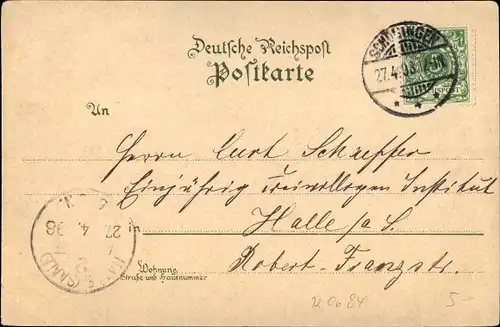 Deutsche Reichspost
Postkarte
SCHÖNINGEN
27.4.98
An
Herrn Curt Schaeffer
Einjährig Freiwilligen Institut
in Halle a/S.
Wohnung
Straße und Hausnummer
Robert-Franzstr.
27. 4. 98
(SAALE)
5-